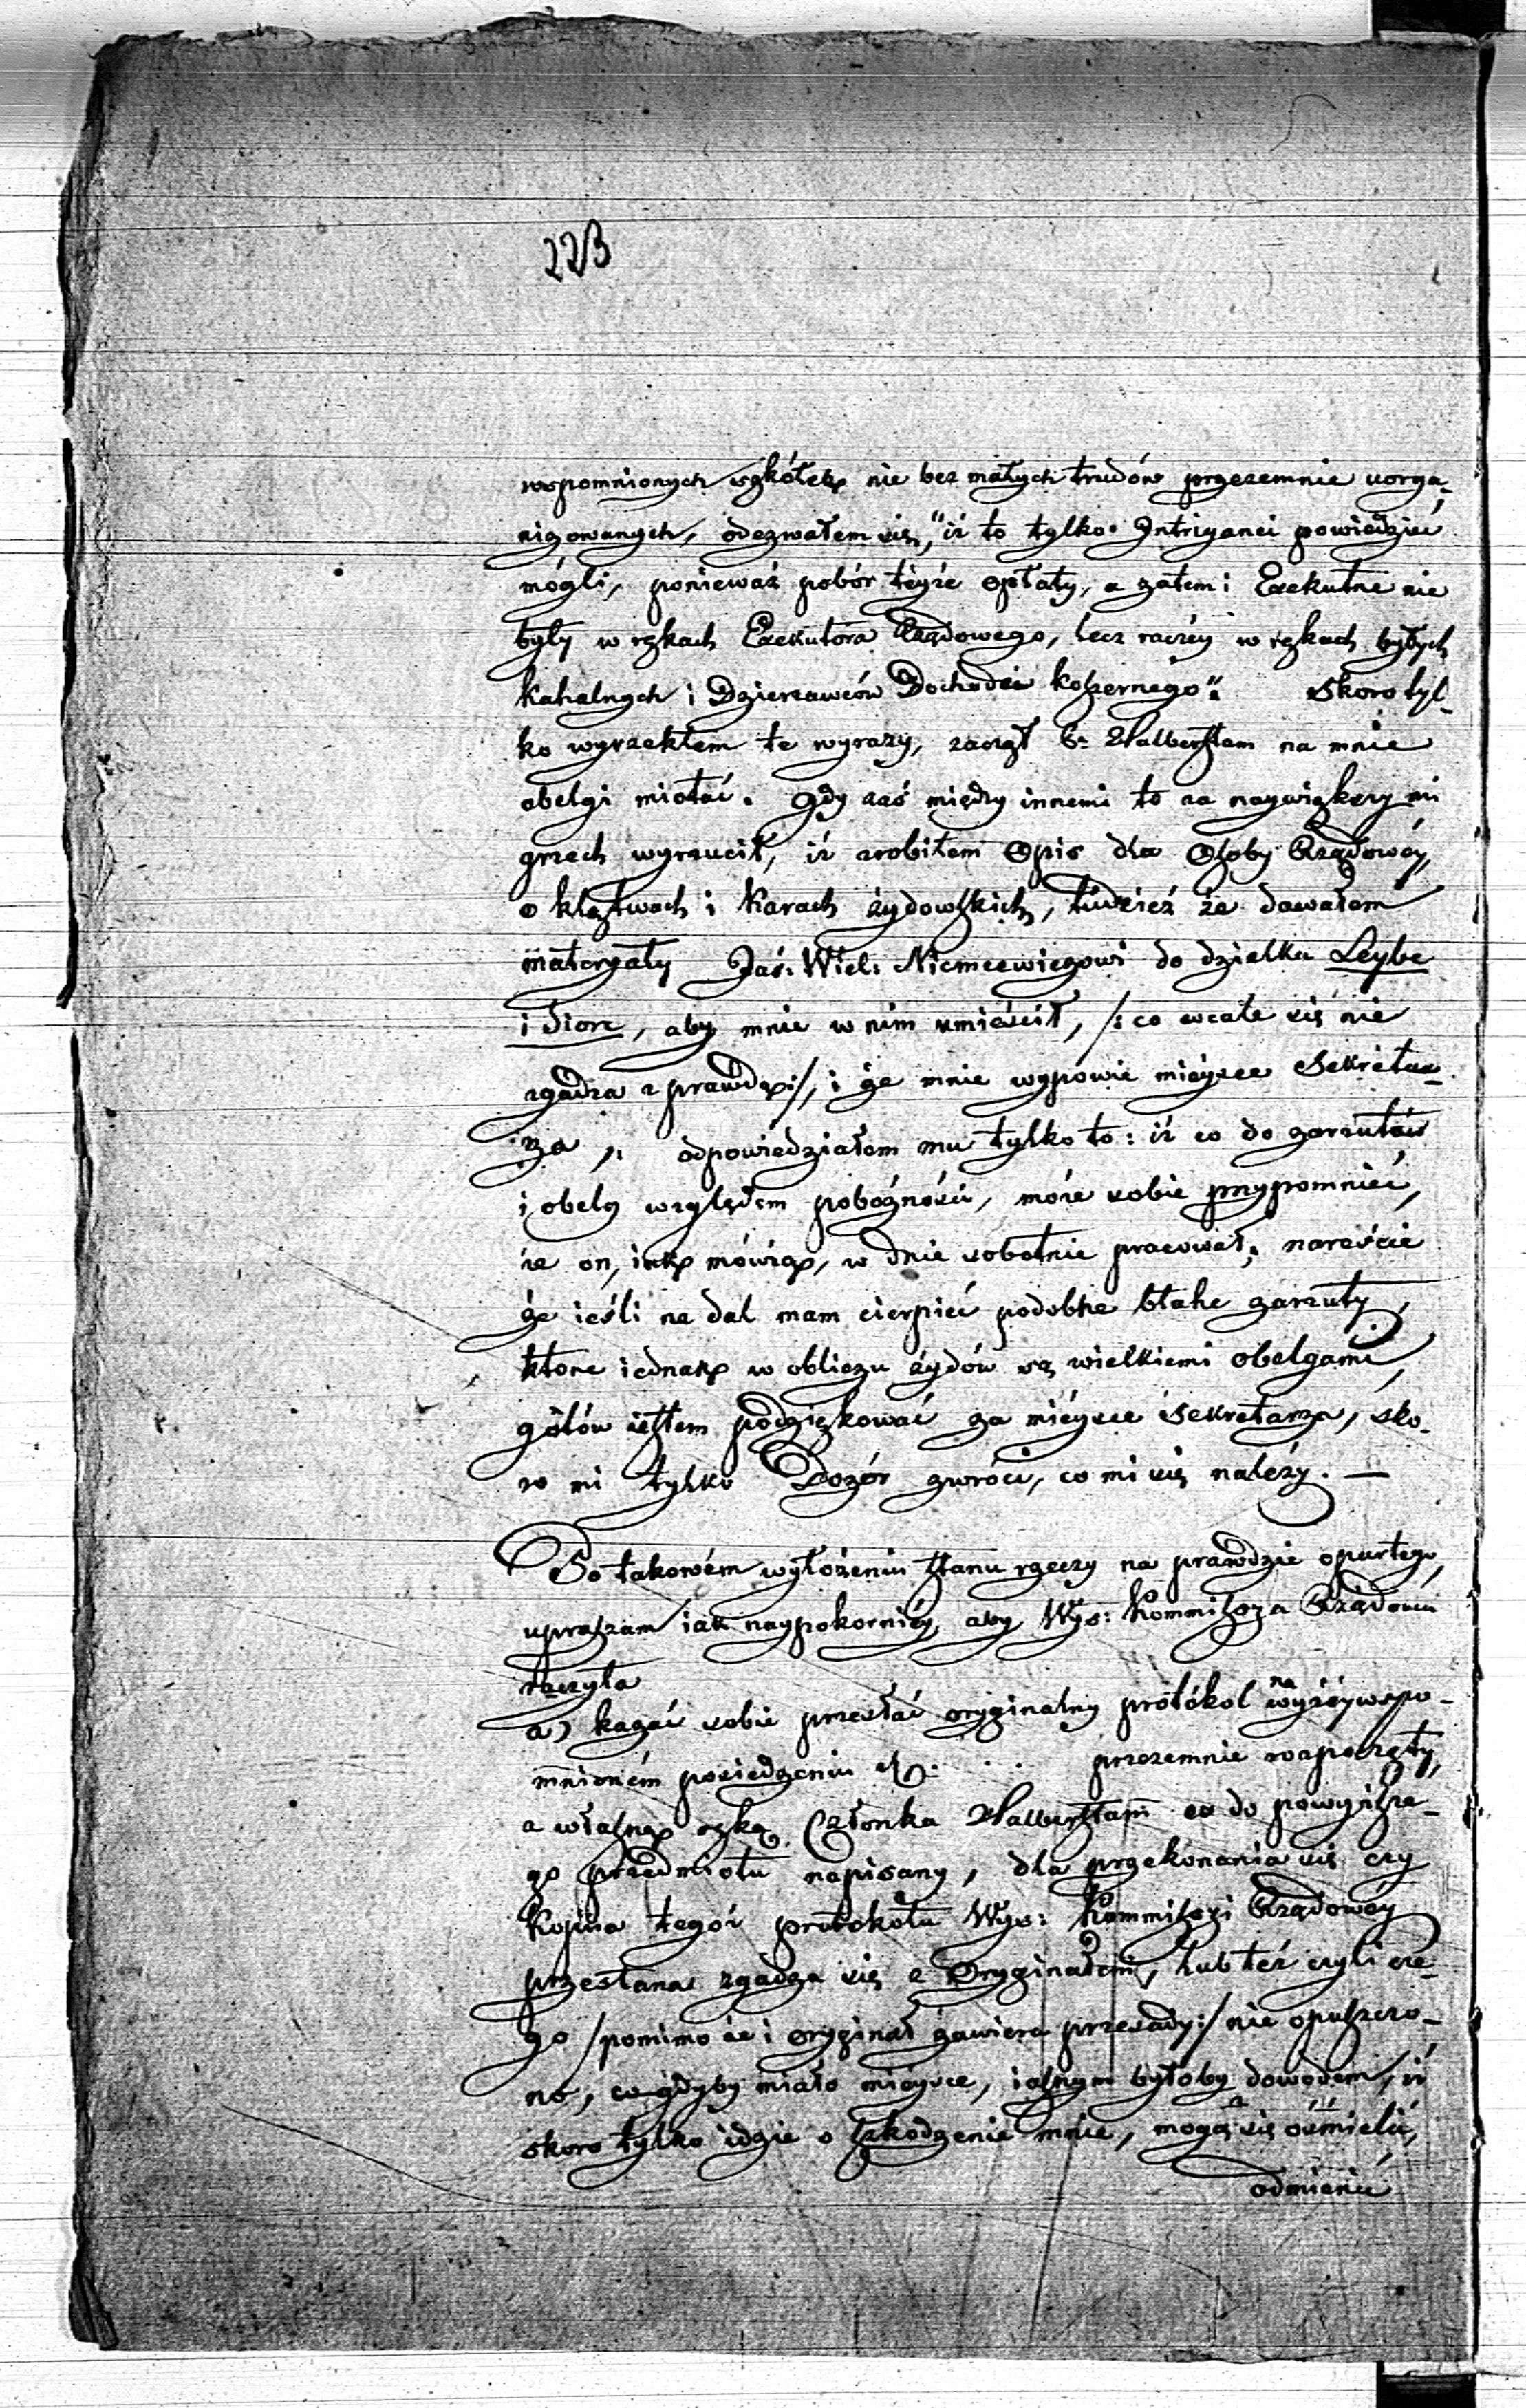 223
wspomnionych szkółek nie bez małych trudów przezemnie uorga-
nizowanych, odezwałem się, "iż to tylko Intryganci powiedzieć
mógli, ponieważ pobór téyże opłaty, a zatem i Exekutne nie
były w rękach Exekutora Rządowego, lecz raczéy w rękach byłych
Kahalnych i Dzierzawców Dochodu koszernego". Skoro tyl-
ko wyrzekłem te wyrazy, zaczął S. Halbersztam na mnie
obelgi miotać. Gdy zaś między innemi to za naywiększy mi
grzech wyrzucił, iż zrobiłem Opis dla Osoby Rządowéy,
o klątwach i Karach żydowskich, tudzież że dawałem
materyały Jaś: Wiel: Niemcewiczowi do dziełka Leybe
i Siore, aby mnie w nim umieścił, /: co wcale się nie
zgadza z prawdą :/, i że mnie wypowie mieysce Sekreta-
rza, odpowiedziałem mu tylko to: iż co do zarzutów
i obelg względem pobożności, może sobie przypomnieć,
że on, jak mówią, w dnie sobotnie pracował; nareście
że ieśli na dal mam cierpieć podobne błahe zarzuty,
które iednak w obliczu żydów są wielkiemi obelgami,
gotów iestem podziękować za mieysce Sekretarza, sko-
ro mi tylko Dozór zwróci, co mi się należy. —
Po takowém wyłożeniu stanu rzeczy na prawdzie opartego,
upraszam iak naypokorniéy, aby Wys: Kommissya Rządowa
raczyła
a) kazać sobie przesłać oryginalny protókol na wyżéywspo-
mnioném posiedzeniu . . . przezemnie rozpoczęty,
a własną ręką Członka Halbersztam co do powyższe-
go przedmiotu napisany, dla przekonania się czy
Kopiia tegoż protokołu Wys: Kommissyi Rządowéy
przesłana zgadza się z Oryginałem, lub też czyli cze-
go /pomimo że i oryginał zawiera przesady:/ nie opuszczo-
no, co gdyby miało mieysce, iasnym byłoby dowodem, iż
skoro tylko idzie o szkodzenie mnie, mogą się ośmielić,
odmienić